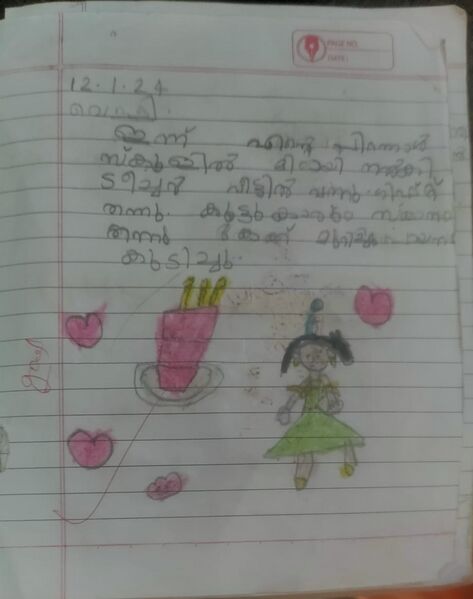 PAGE NO.
DATE:
12.1.24
വെള്ളി.
ഇന്ന് എന്റെ പിറന്നാൾ
സ്കൂളിൽ മിഠായി നൽകി
ടീച്ചർ വീട്ടിൽ വന്നു ഗിഫ്റ്റ്
തന്നു. കൂട്ടുകാരും സമ്മാനം
തന്നു കേക്ക് മുറിച്ചു പായസം
കുടിച്ചു.